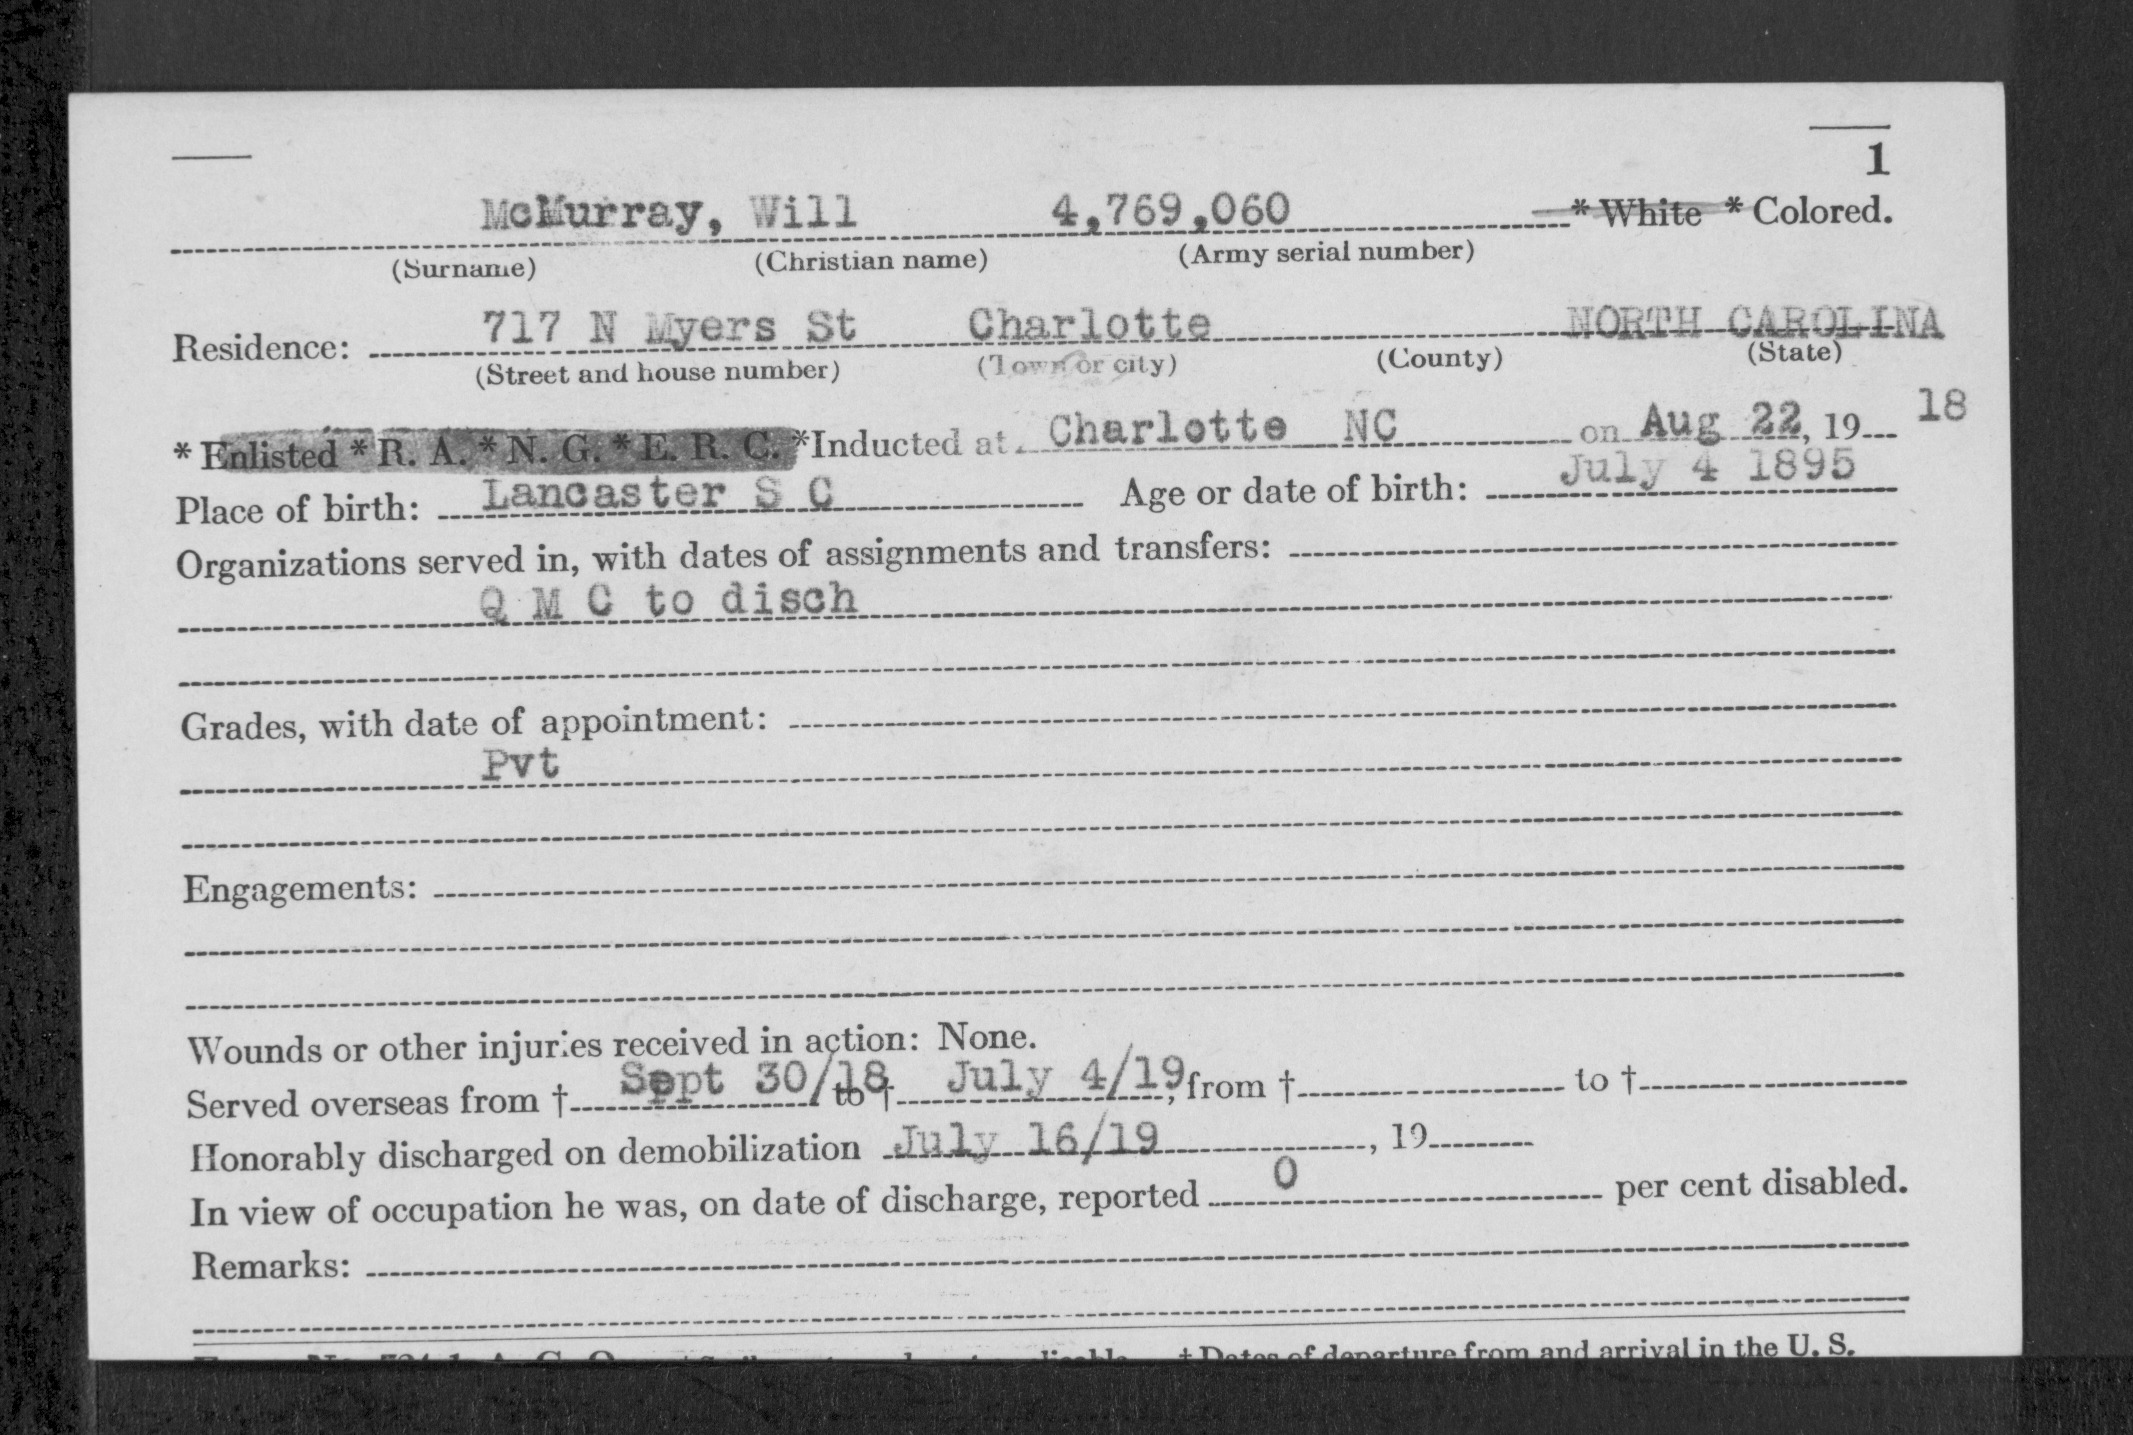 1
McMurray, Will 4,769,060 * White * Colored.
(Surname) (Christian name) (Army serial number)
Residence: 717 N Myers St Charlotte NORTH CAROLINA
(Street and house number) (Town or city) (County) (State)
* Enlisted * R. A. * N. G. * E. R. C. *Inducted at Charlotte NC on Aug 22, 19 18
Place of birth: Lancaster S C Age or date of birth: July 4 1895
Organizations served in, with dates of assignments and transfers:
Q M C to disch
Grades, with date of appointment:
Pvt
Engagements:
Wounds or other injuries received in action: None.
Served overseas from † Sept 30/18 to † July 4/19, from † to †
Honorably discharged on demobilization July 16/19, 19
In view of occupation he was, on date of discharge, reported 0 per cent disabled.
Remarks:
† Dates of departure from and arrival in the U. S.